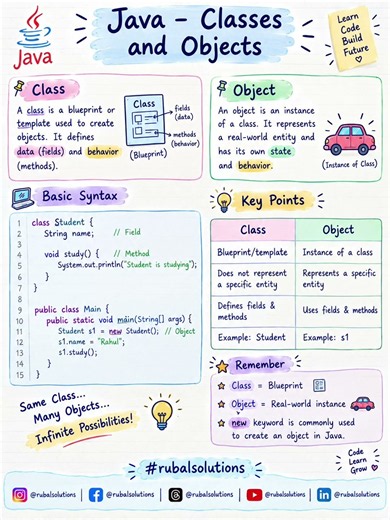 Java
Java – Classes
and Objects
Learn
Code
Build
Future
Class
A class is a blueprint or
template used to create
objects. It defines
data (fields) and behavior
(methods).
Class
fields
(data)
methods
(behavior)
(Blueprint)
Object
An object is an instance
of a class. It represents
a real-world entity and
has its own state
and behavior.
(Instance of Class)
Basic Syntax
1 class Student {
2 String name; // Field
3
4 void study() { // Method
5 System.out.println("Student is studying");
6 }
7 }
8
9 public class Main {
10 public static void main(String[] args) {
11 Student s1 = new Student(); // Object
12 s1.name = "Rahul";
13 s1.study();
14 }
15 }
Key Points
Class Object
Blueprint/template Instance of a class
Does not represent Represents a specific
a specific entity entity
Defines fields & Uses fields & methods
methods
Example: Student Example: s1
Same Class...
Many Objects...
Infinite Possibilities!
Remember
Class = Blueprint
Object = Real-world instance
new keyword is commonly used
to create an object in Java.
#rubalsolutions
Code
Learn
Grow
@rubalsolutions | @rubalsolutions | @rubalsolutions | @rubalsolutions | @rubalsolutions